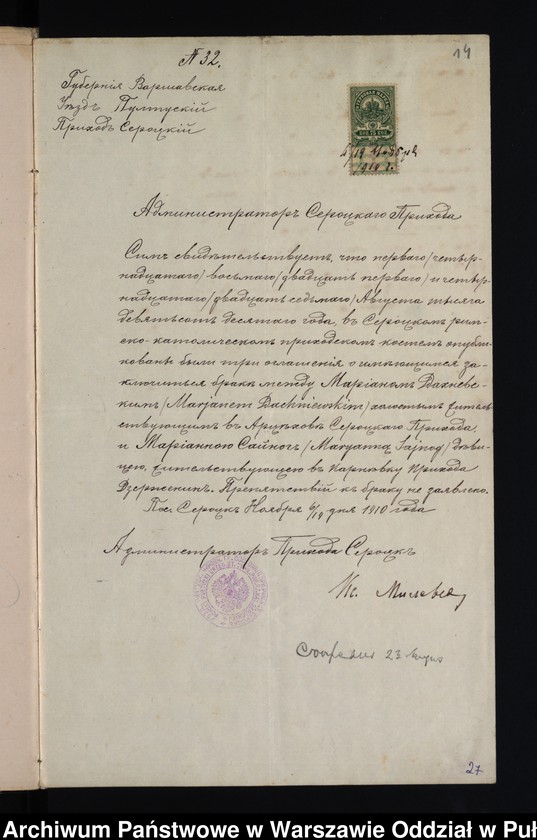 № 32.
14
Губернія Варшавская
Уѣздъ Пултускій
Приходъ Сероцкій
1910 г.
Администраторъ Сероцкаго Прихода
Симъ свидѣтельствуетъ, что перваго /четыр-
надцатаго/ восьмаго /двадцать перваго/ и четыр-
надцатаго /двадцать седьмаго/ Августа тысяча
девятьсотъ десятаго года, въ Сероцкомъ рим-
ско-католическомъ приходскомъ костелѣ опубли-
кованы были три оглашенія о имѣющимся за-
ключиться бракѣ между Маріаномъ Бахневс-
кимъ /Marjanem Bachniewskim/ холостымъ жительст-
вующимъ въ Сероцкаго Прихода
и Маріанною Сайногъ /Maryanną Sajnog/ дѣви-
цею, жительствующею въ Прихода
Дзерженинъ. Препятствій къ браку не заявлено.
Пос. Сероцкъ Ноября 6/19 дня 1910 года
Администраторъ Прихода Сероцкъ
23
27
Archiwum Państwowe w Warszawie Oddział w Puł